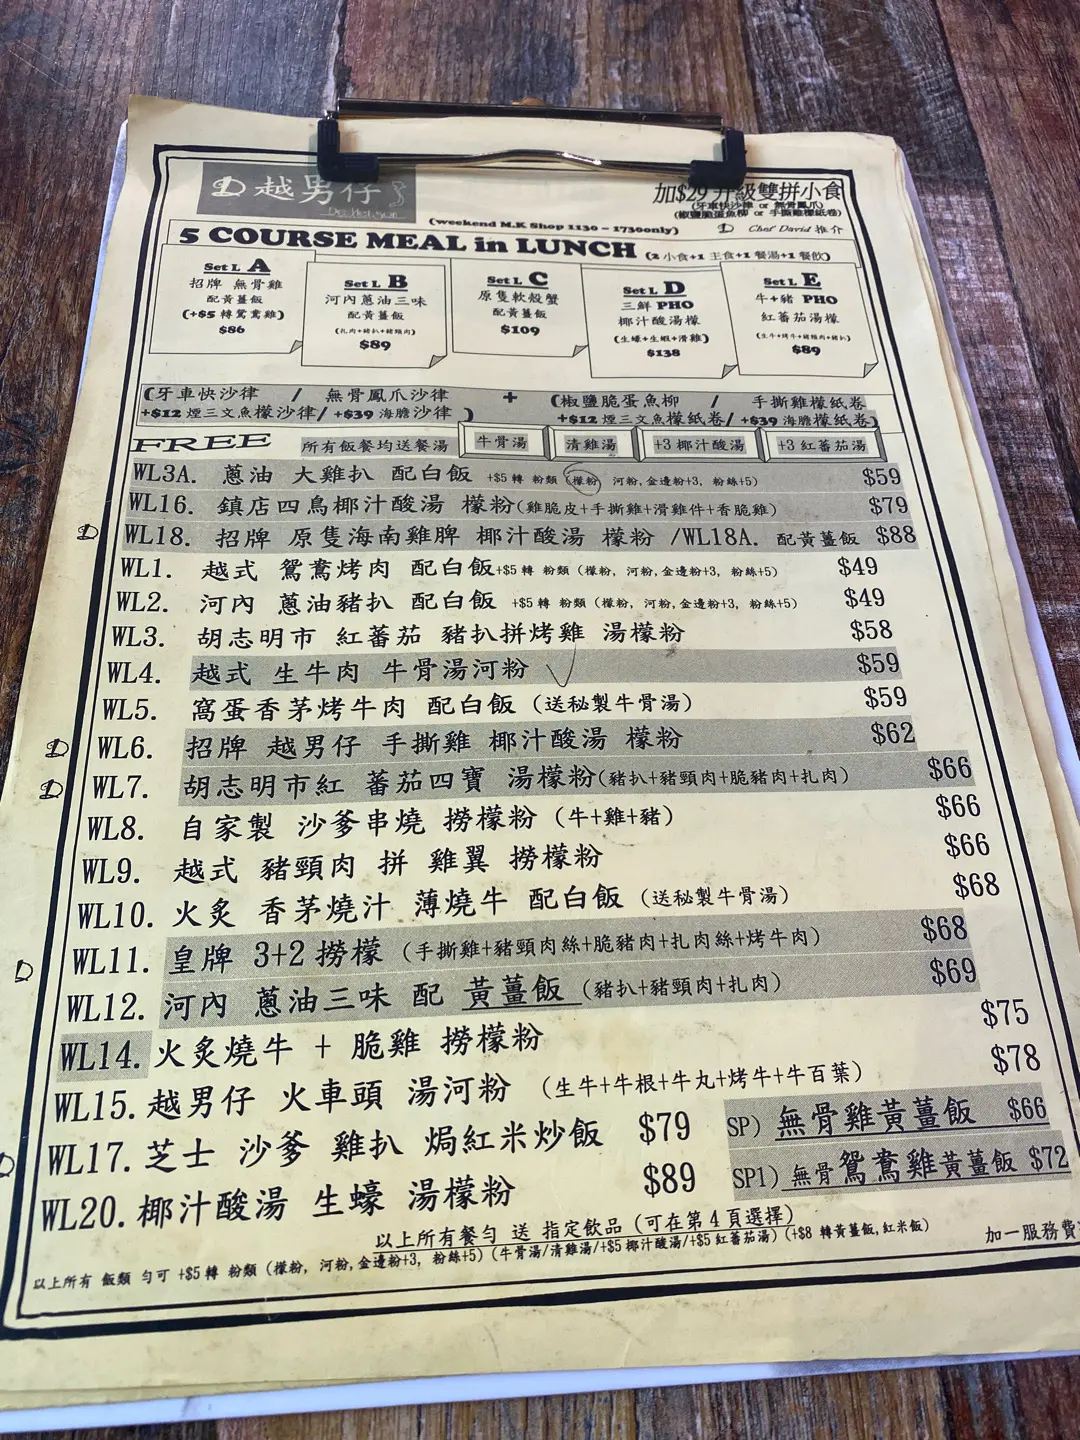 越男仔
加$29 升級雙拼小食
(牙車快沙律 or 無骨鳳爪)
(椒鹽脆蛋魚柳 or 手撕雞檬紙卷)
(weekend M.K Shop 1130 - 1730only)
Chef David 推介
5 COURSE MEAL in LUNCH (2 小食+1 主食+1 餐湯+1 餐飲)
Set L A
招牌 無骨雞
配黃薑飯
(+$5 轉鴛鴦雞)
$86
Set L B
河內蔥油三味
配黃薑飯
(扎肉+豬扒+豬頸肉)
$89
Set L C
原隻軟殼蟹
配黃薑飯
$109
Set L D
三鮮 PHO
椰汁酸湯檬
(生蠔+生蝦+滑雞)
$138
Set L E
牛+豬 PHO
紅蕃茄湯檬
(生牛+烤牛+豬頸肉+豬扒)
$89
(牙車快沙律 / 無骨鳳爪沙律 + (椒鹽脆蛋魚柳 / 手撕雞檬紙卷
+$12 煙三文魚檬沙律/ +$39 海膽沙律 ) +$12 煙三文魚檬紙卷/ +$39 海膽檬紙卷)
FREE 所有飯餐均送餐湯 牛骨湯 清雞湯 +3 椰汁酸湯 +3 紅蕃茄湯
WL3A. 蔥油 大雞扒 配白飯 +$5 轉 粉類 (檬粉, 河粉,金邊粉+3, 粉絲+5) $59
WL16. 鎮店四鳥椰汁酸湯 檬粉(雞脆皮+手撕雞+滑雞件+香脆雞) $79
WL18. 招牌 原隻海南雞髀 椰汁酸湯 檬粉 /WL18A. 配黃薑飯 $88
WL1. 越式 鴛鴦烤肉 配白飯+$5 轉 粉類 (檬粉, 河粉,金邊粉+3, 粉絲+5) $49
WL2. 河內 蔥油豬扒 配白飯 +$5 轉 粉類 (檬粉, 河粉,金邊粉+3, 粉絲+5) $49
WL3. 胡志明市 紅蕃茄 豬扒拼烤雞 湯檬粉 $58
WL4. 越式 生牛肉 牛骨湯河粉 $59
WL5. 窩蛋香茅烤牛肉 配白飯 (送秘製牛骨湯) $59
WL6. 招牌 越男仔 手撕雞 椰汁酸湯 檬粉 $62
WL7. 胡志明市紅 蕃茄四寶 湯檬粉(豬扒+豬頸肉+脆豬肉+扎肉) $66
WL8. 自家製 沙爹串燒 撈檬粉 (牛+雞+豬) $66
WL9. 越式 豬頸肉 拼 雞翼 撈檬粉 $66
WL10. 火炙 香茅燒汁 薄燒牛 配白飯 (送秘製牛骨湯) $68
WL11. 皇牌 3+2 撈檬 (手撕雞+豬頸肉絲+脆豬肉+扎肉絲+烤牛肉) $68
WL12. 河內 蔥油三味 配 黃薑飯 (豬扒+豬頸肉+扎肉) $69
WL14. 火炙燒牛 + 脆雞 撈檬粉 $75
WL15. 越男仔 火車頭 湯河粉 (生牛+牛根+牛丸+烤牛+牛百葉) $78
WL17. 芝士 沙爹 雞扒 焗紅米炒飯 $79
SP) 無骨雞黃薑飯 $66
WL20. 椰汁酸湯 生蠔 湯檬粉 $89
SP1) 無骨鴛鴦雞黃薑飯 $72
以上所有餐勻 送 指定飲品 (可在第 4 頁選擇)
以上所有 飯類 勻可 +$5 轉 粉類 (檬粉, 河粉,金邊粉+3, 粉絲+5) (牛骨湯/清雞湯/+$5 椰汁酸湯/+$5 紅蕃茄湯) (+$8 轉黃薑飯,紅米飯)
加一服務費